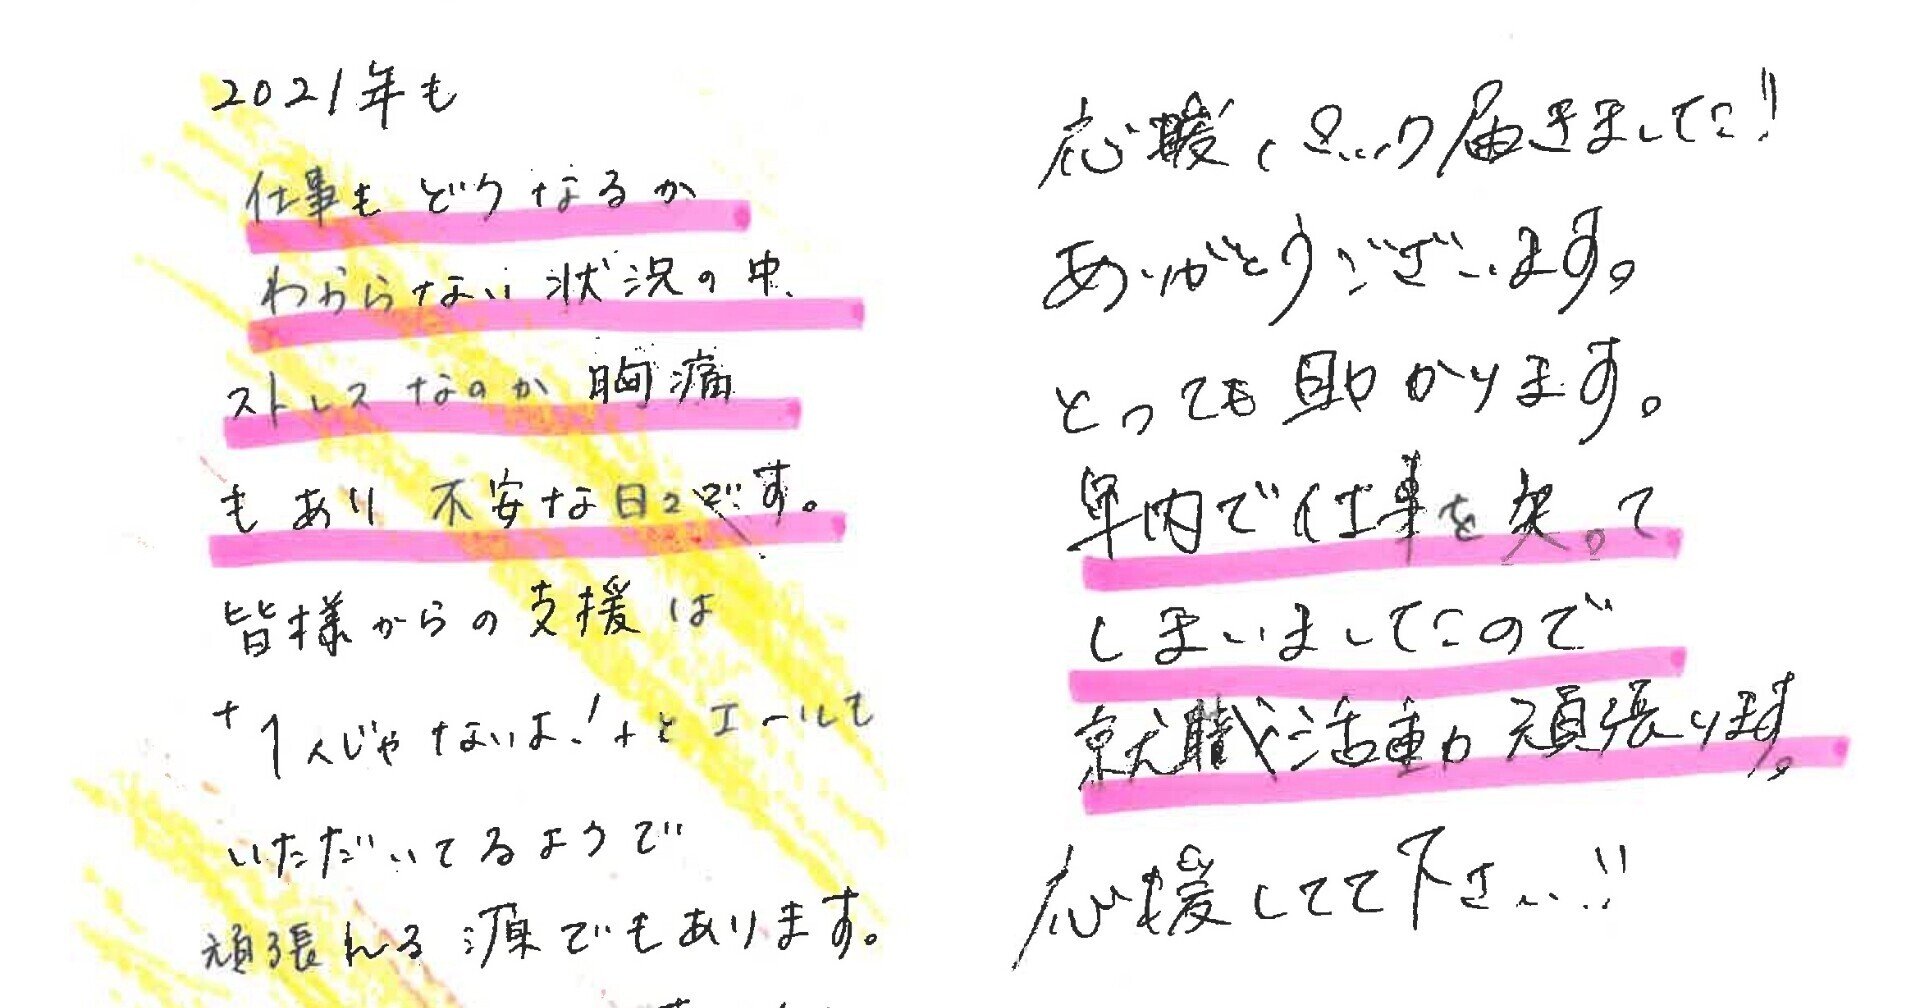 2021年も
仕事もどうなるか
わからない状況の中、
ストレスなのか胸痛
もあり不安な日々です。
皆様からの支援は
"1人じゃないよ!"とエールも
いただいてるようで
頑張れる源でもあります。
応援パック届きました!!
ありがとうございます。
とっても助かります。
年内で仕事を失って
しまいましたので
就職活動頑張ります。
応援してて下さい!!